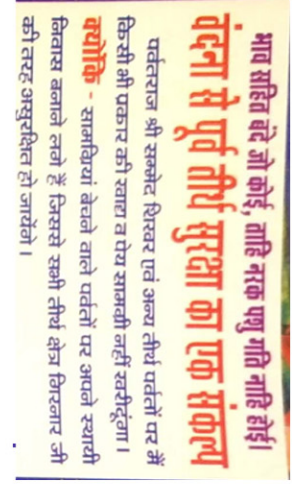 भाव सहित वंदे जो कोई, ताहि नरक पशु गति नाहि होई।
वंदना से पूर्व तीर्थ सुरक्षा का एक संकल्प
पर्वतराज श्री सम्मेद शिखर एवं अन्य तीर्थ पर्वतों पर मैं
किसी भी प्रकार की खाद्य व पेय सामग्री नहीं खरीदूंगा ।
क्योंकि - सामग्रियां बेचने वाले पर्वतों पर अपने स्थायी
निवास बनाने लगे हैं जिससे सभी तीर्थ क्षेत्र गिरनार जी
की तरह असुरक्षित हो जायेंगे ।